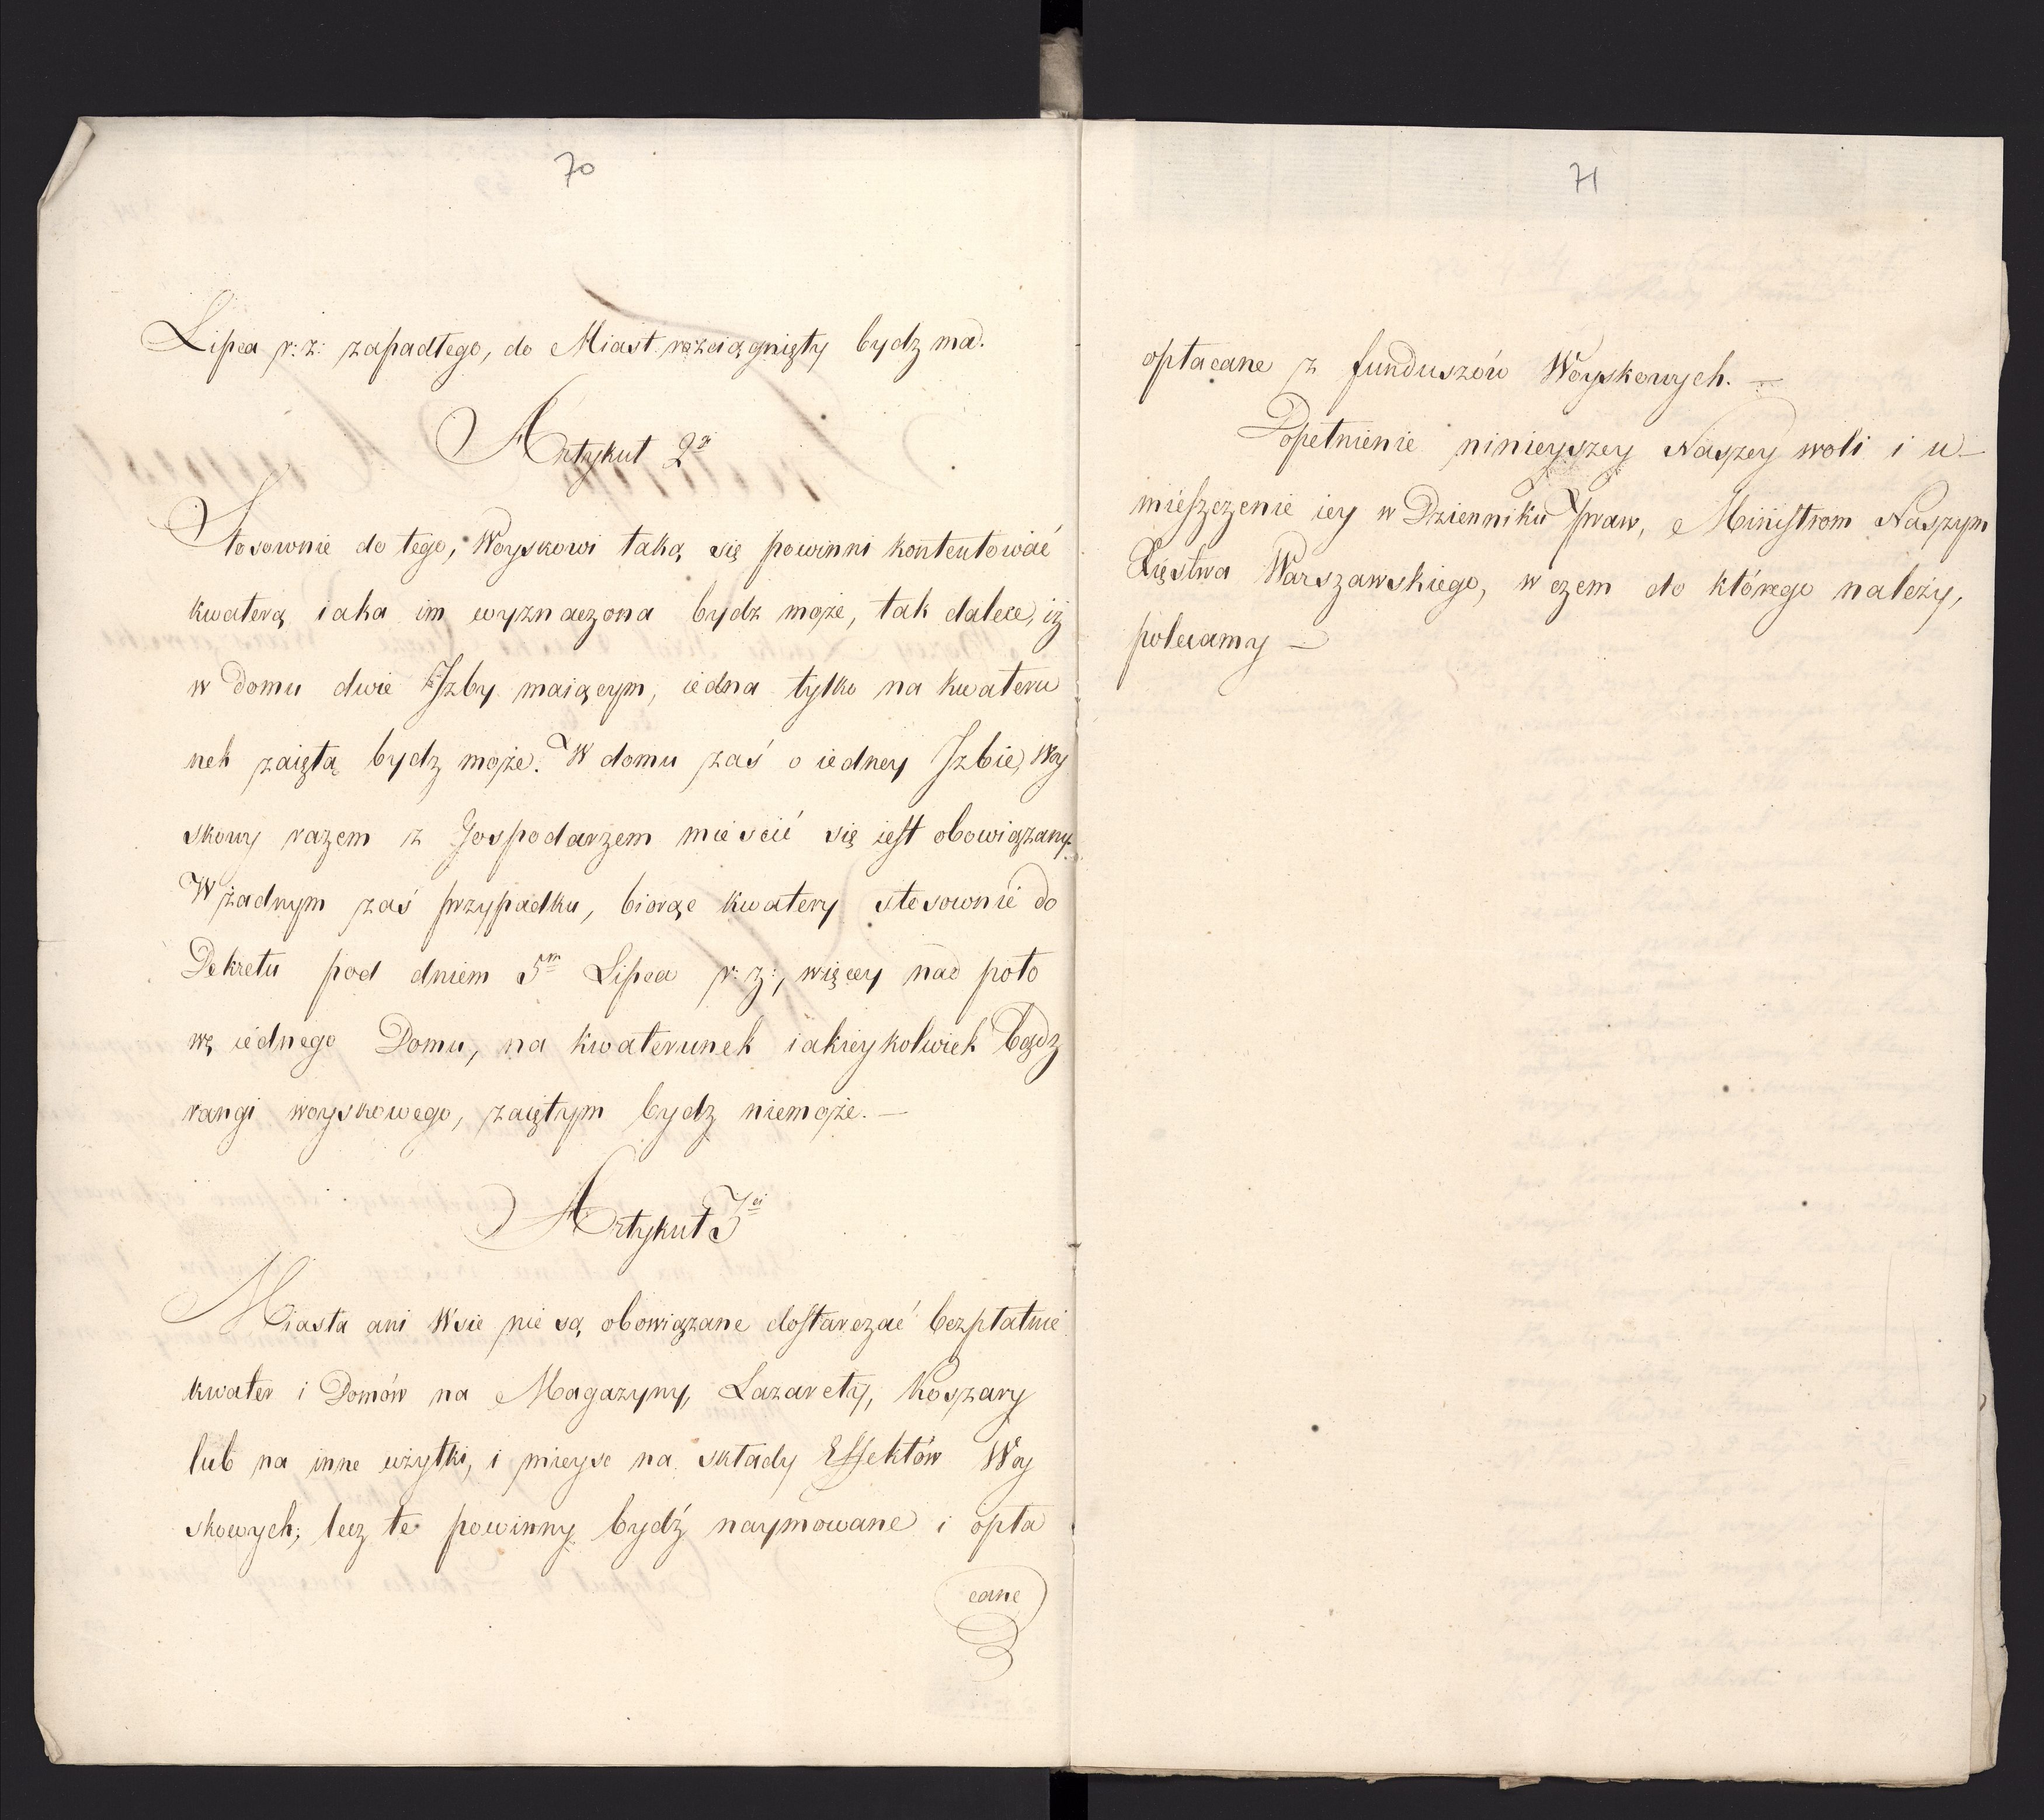 70
Lipca r: z: zapadłego, do Miast rozciągnięty bydz ma.
Artykuł 2gi
Stosownie do tego, Woyskowi taką się powinni kontentować
kwaterą iaka im wyznaczona bydz może, tak dalece, iż
w domu dwie Izby maiącym, iedna tylko na kwateru
nek zaiętą bydz może. W domu zaś o iedney Izbie, Woy
skowy razem z Gospodarzem mieścić się iest obowiązany.
W żadnym zaś przypadku, biorąc kwatery stosownie do
Dekretu pod dniem 5m Lipca r: z:, więcey nad poło
wę iednego Domu, na kwaterunek iakieykolwiek bądz
rangi woyskowego, zaiętym bydz niemoże. —
Artykuł 3ci
Miasta ani Wsie nie są obowiązane dostarczać bezpłatnie
kwater i Domów na Magazyny, Lazarety, Koszary
lub na inne użytki, i mieysc na składy Effektów Woy
skowych; lecz te powinny bydź naymowane i opła
cane
71
opłacane z funduszów Woyskowych. —
Dopełnienie ninieyszey Naszey woli i u-
mieszczenie iey w Dzienniku Praw, Ministrom Naszym
Xięstwa Warszawskiego, w czem do którego należy,
polecamy —